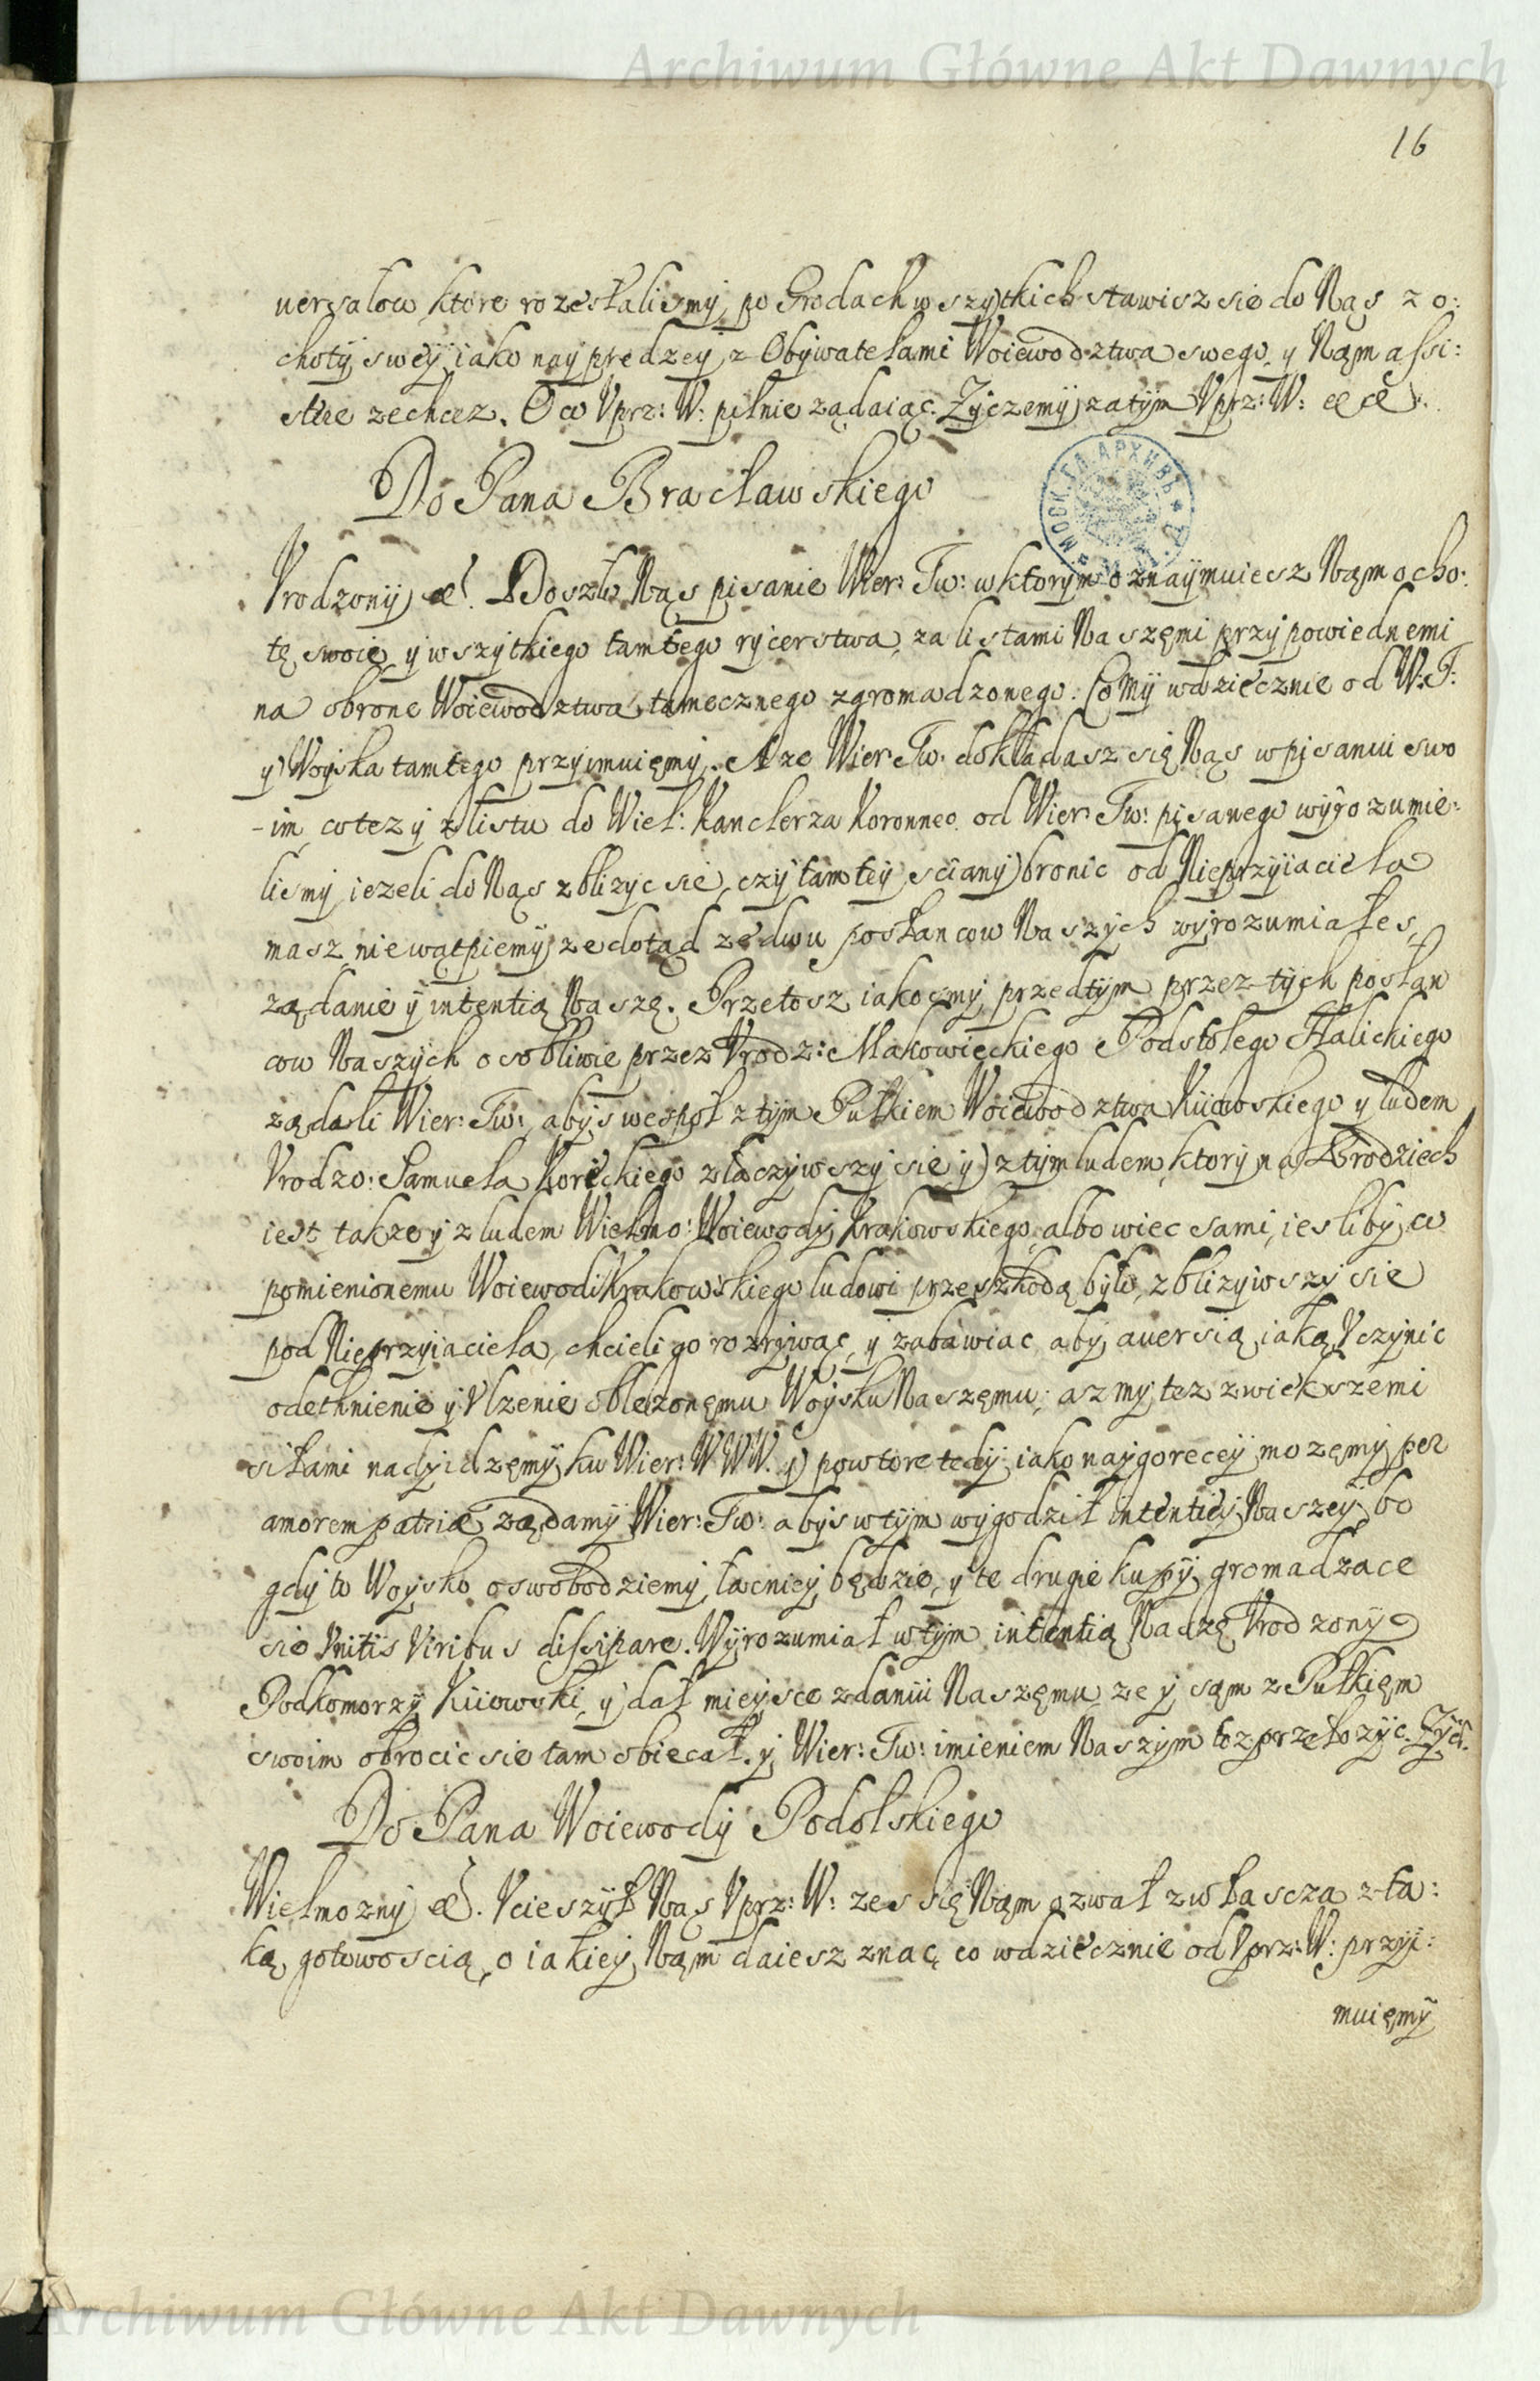 Archiwum Główne Akt Dawnych
16
uersałow, ktore rozesłalismy, po Grodach wszytkich stawisz sie do Nas z o:
choty swey iako nayprędzey z Obywatelami Woiewodztwa swego y Nąm assi:
stere zechcez. O co Vprz: W: pilnie żądaiąc. Zyczemy zatym Vprz: W: etc etc.
Do Pana Bracławskiego
Vrodzony etc. Doszło Nąs pisanie Wier: Tw: w ktorym oznaymuiesz Nąm ocho:
tę swoię y wszytkiego tamtego rycerstwa, za listami Naszęmi przypowiednemi
na obronę Woiewodztwa tamecznego zgromadzonego: Co My wdziecznie od W: T:
y Woyska tamtego przyimuięmy. A że Wier: Tw: dokładasz się Nąs w pisaniu swo
-im, co też y z listu do Wiel: Kanclerza Koronneo od Wier: Tw: pisanego wyrozumie:
lismy, iezeli do Nąs zblizyc sie, czy tamtey sciany bronic od Nieprzyiaciela
masz, niewątpiemy, ze dotąd ze dwu posłancow Naszych wyrozumiałes,
żądanie y intentią Naszę. Przetosz iakosmy przedtym przez tych posłan
cow Naszych osobliwie przez Vrodz: Makowięckiego Podstolego Halickiego
żądali Wier: Tw: abys wespoł z tym Pułkiem Woiewodztwa Kiiowskiego y ludem
Vrodzo: Samuela Koreckiego złączywszy się y z tym ludem, ktory na Brodziech
iest, takze y z ludem Wielmo: Woiewody Krakowskiego, albo wiec sami, iesliby co
pomienionemu Woiewodi Krakowskiego ludowi przeszkodą było, zblizywszy sie
pod Nieprzyiaciela, chcieli go rozrywąc, y zabawiac, aby auersią iaką Vczynic
odetchnienie y Vlzenie oblezonęmu Woysku Naszęmu; az my tez z wiekszemi
siłami nadyidzęmy ku Wier: WWW. y powtore tedy iako naygorecey mozęmy per
amorem patriæ żądamy Wier: Tw: abys w tym wygodził intentiey Naszey, bo
gdy to Woysko oswobodziemy, łacniey będzie, y te drugie kupy gromadzące
sie Vnitis Viribus dissipare. Wyrozumiał w tym intentią Naszę Vrodzony
Podkomorzy Kiiowski, y dał mieysce zdaniu Naszęmu, ze y sąm z Pułkięm
swoim obrocic sie tam obiecał. y Wier: Tw: imieniem Naszym toz przełozyc. Zycz.
Do Pana Woiewody Podolskiego
Wielmozny etc. Vcieszył Nąs Vprz: W: zes się Nąm ozwał zwłascza z ta:
ką gotowoscią, o iakiey Nąm daiesz znac, co wdziecznie od Vprz: W: przyi:
muięmy
Archiwum Główne Akt Dawnych